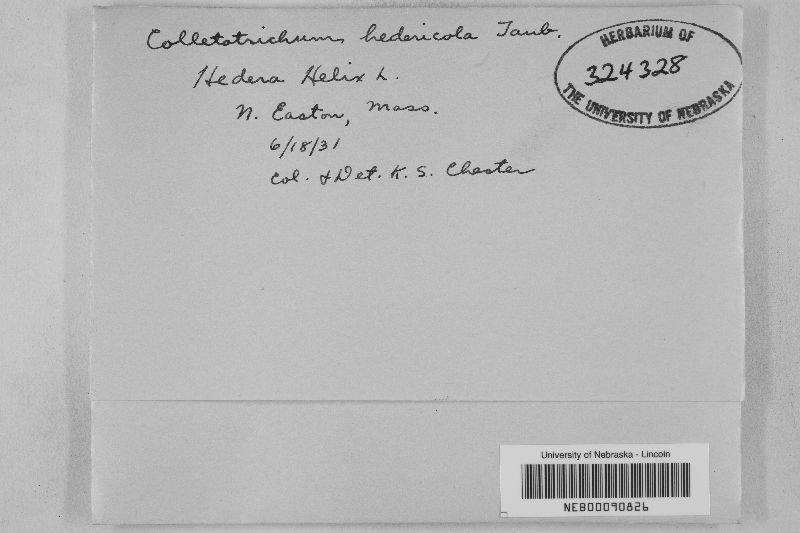 Colletotrichum hedericola Taub.
Hedera Helix L.
N. Easton, Mass.
6/18/31
Col. & Det. K. S. Chester
HERBARIUM OF
324328
THE UNIVERSITY OF NEBRASKA
University of Nebraska - Lincoln
NEB00090826